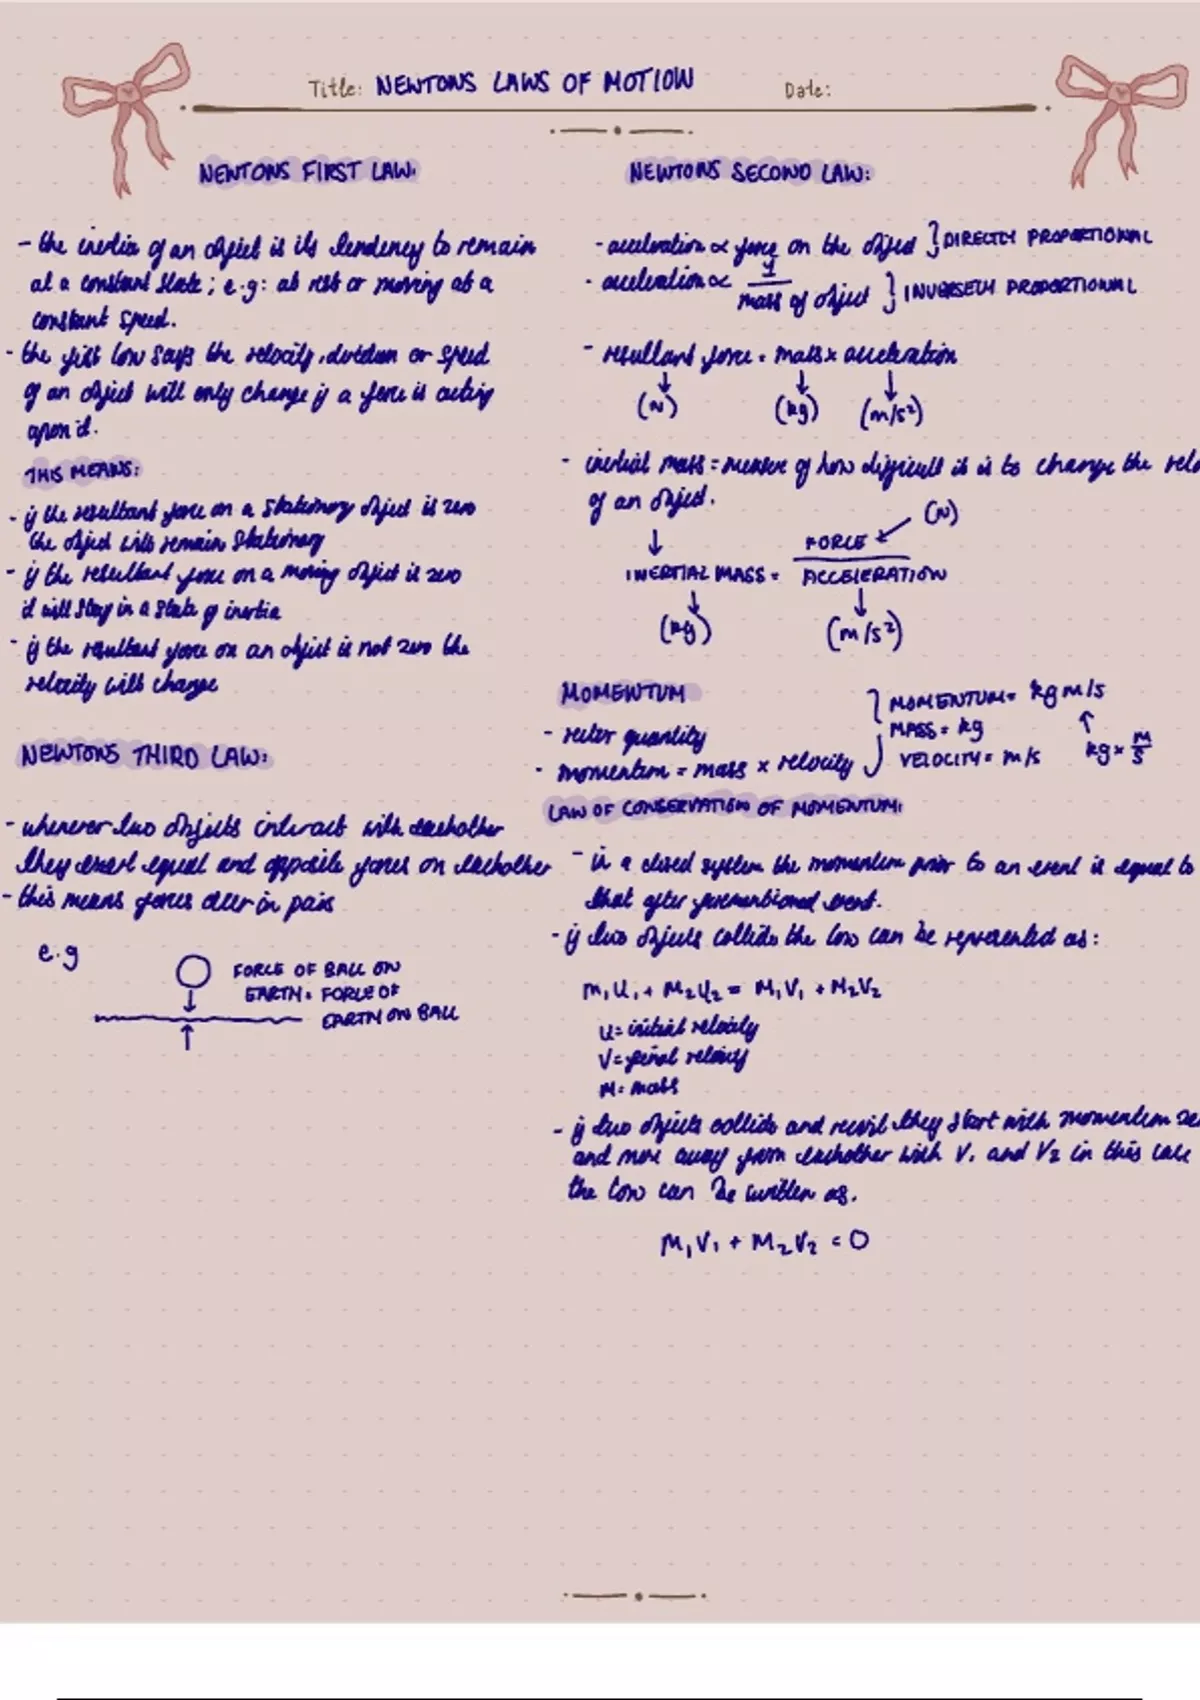 Title: NEWTONS LAWS OF MOTION
Date:
NEWTONS FIRST LAW.
- the inertia of an object is its tendency to remain
at a constant state; e.g: at rest or moving at a
constant speed.
- the first law says the velocity, direction or speed
of an object will only change if a force is acting
upon it.
THIS MEANS:
- if the resultant force on a stationary object is zero
the object will remain stationary
- if the resultant force on a moving object is zero
it will stay in a state of inertia
- if the resultant force on an object is not zero the
velocity will change
NEWTONS THIRD LAW:
- whenever two objects interact with eachother
they exert equal and opposite forces on eachother
- this means forces occur in pairs
e.g
FORCE OF BALL ON
EARTH = FORCE OF
EARTH ON BALL
NEWTONS SECOND LAW:
- acceleration ∝ force on the object } DIRECTLY PROPORTIONAL
- acceleration ∝ 1 / mass of object } INVERSELY PROPORTIONAL
- resultant force = mass x acceleration
(N) (kg) (m/s²)
- inertial mass = measure of how difficult it is to change the velo
of an object.
(N)
INERTIAL MASS = FORCE / ACCELERATION
(kg) (m/s²)
MOMENTUM
- vector quantity
- momentum = mass x velocity
MOMENTUM = kg m/s
MASS = kg
VELOCITY = m/s
kg x m/s
LAW OF CONSERVATION OF MOMENTUM:
- in a closed system the momentum prior to an event is equal to
that after event.
- if two objects collide the law can be represented as:
m₁u₁ + M₂u₂ = M₁V₁ + M₂V₂
u = initial velocity
V = final velocity
M = mass
- if two objects collide and recoil they start with momentum ze
and move away from eachother with V₁ and V₂ in this case
the law can be written as.
M₁V₁ + M₂V₂ = 0